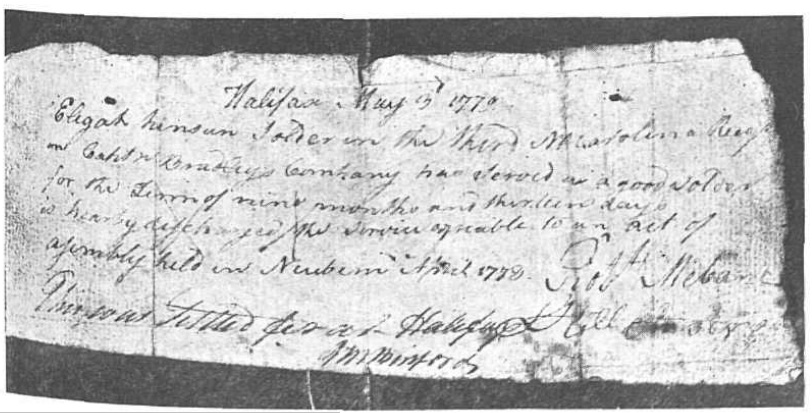 Halifax May 3d 1779
Eligah hinsun Solder in the third No Carolina Regt
in Captn Bradleys Company has Served as a good Solder
for the Term of nine months and thirteen days
is hearby discharged the Service agreable to an act of
asembly held in Newbern April 1778. Robt Mebane
Settled for at Halifax